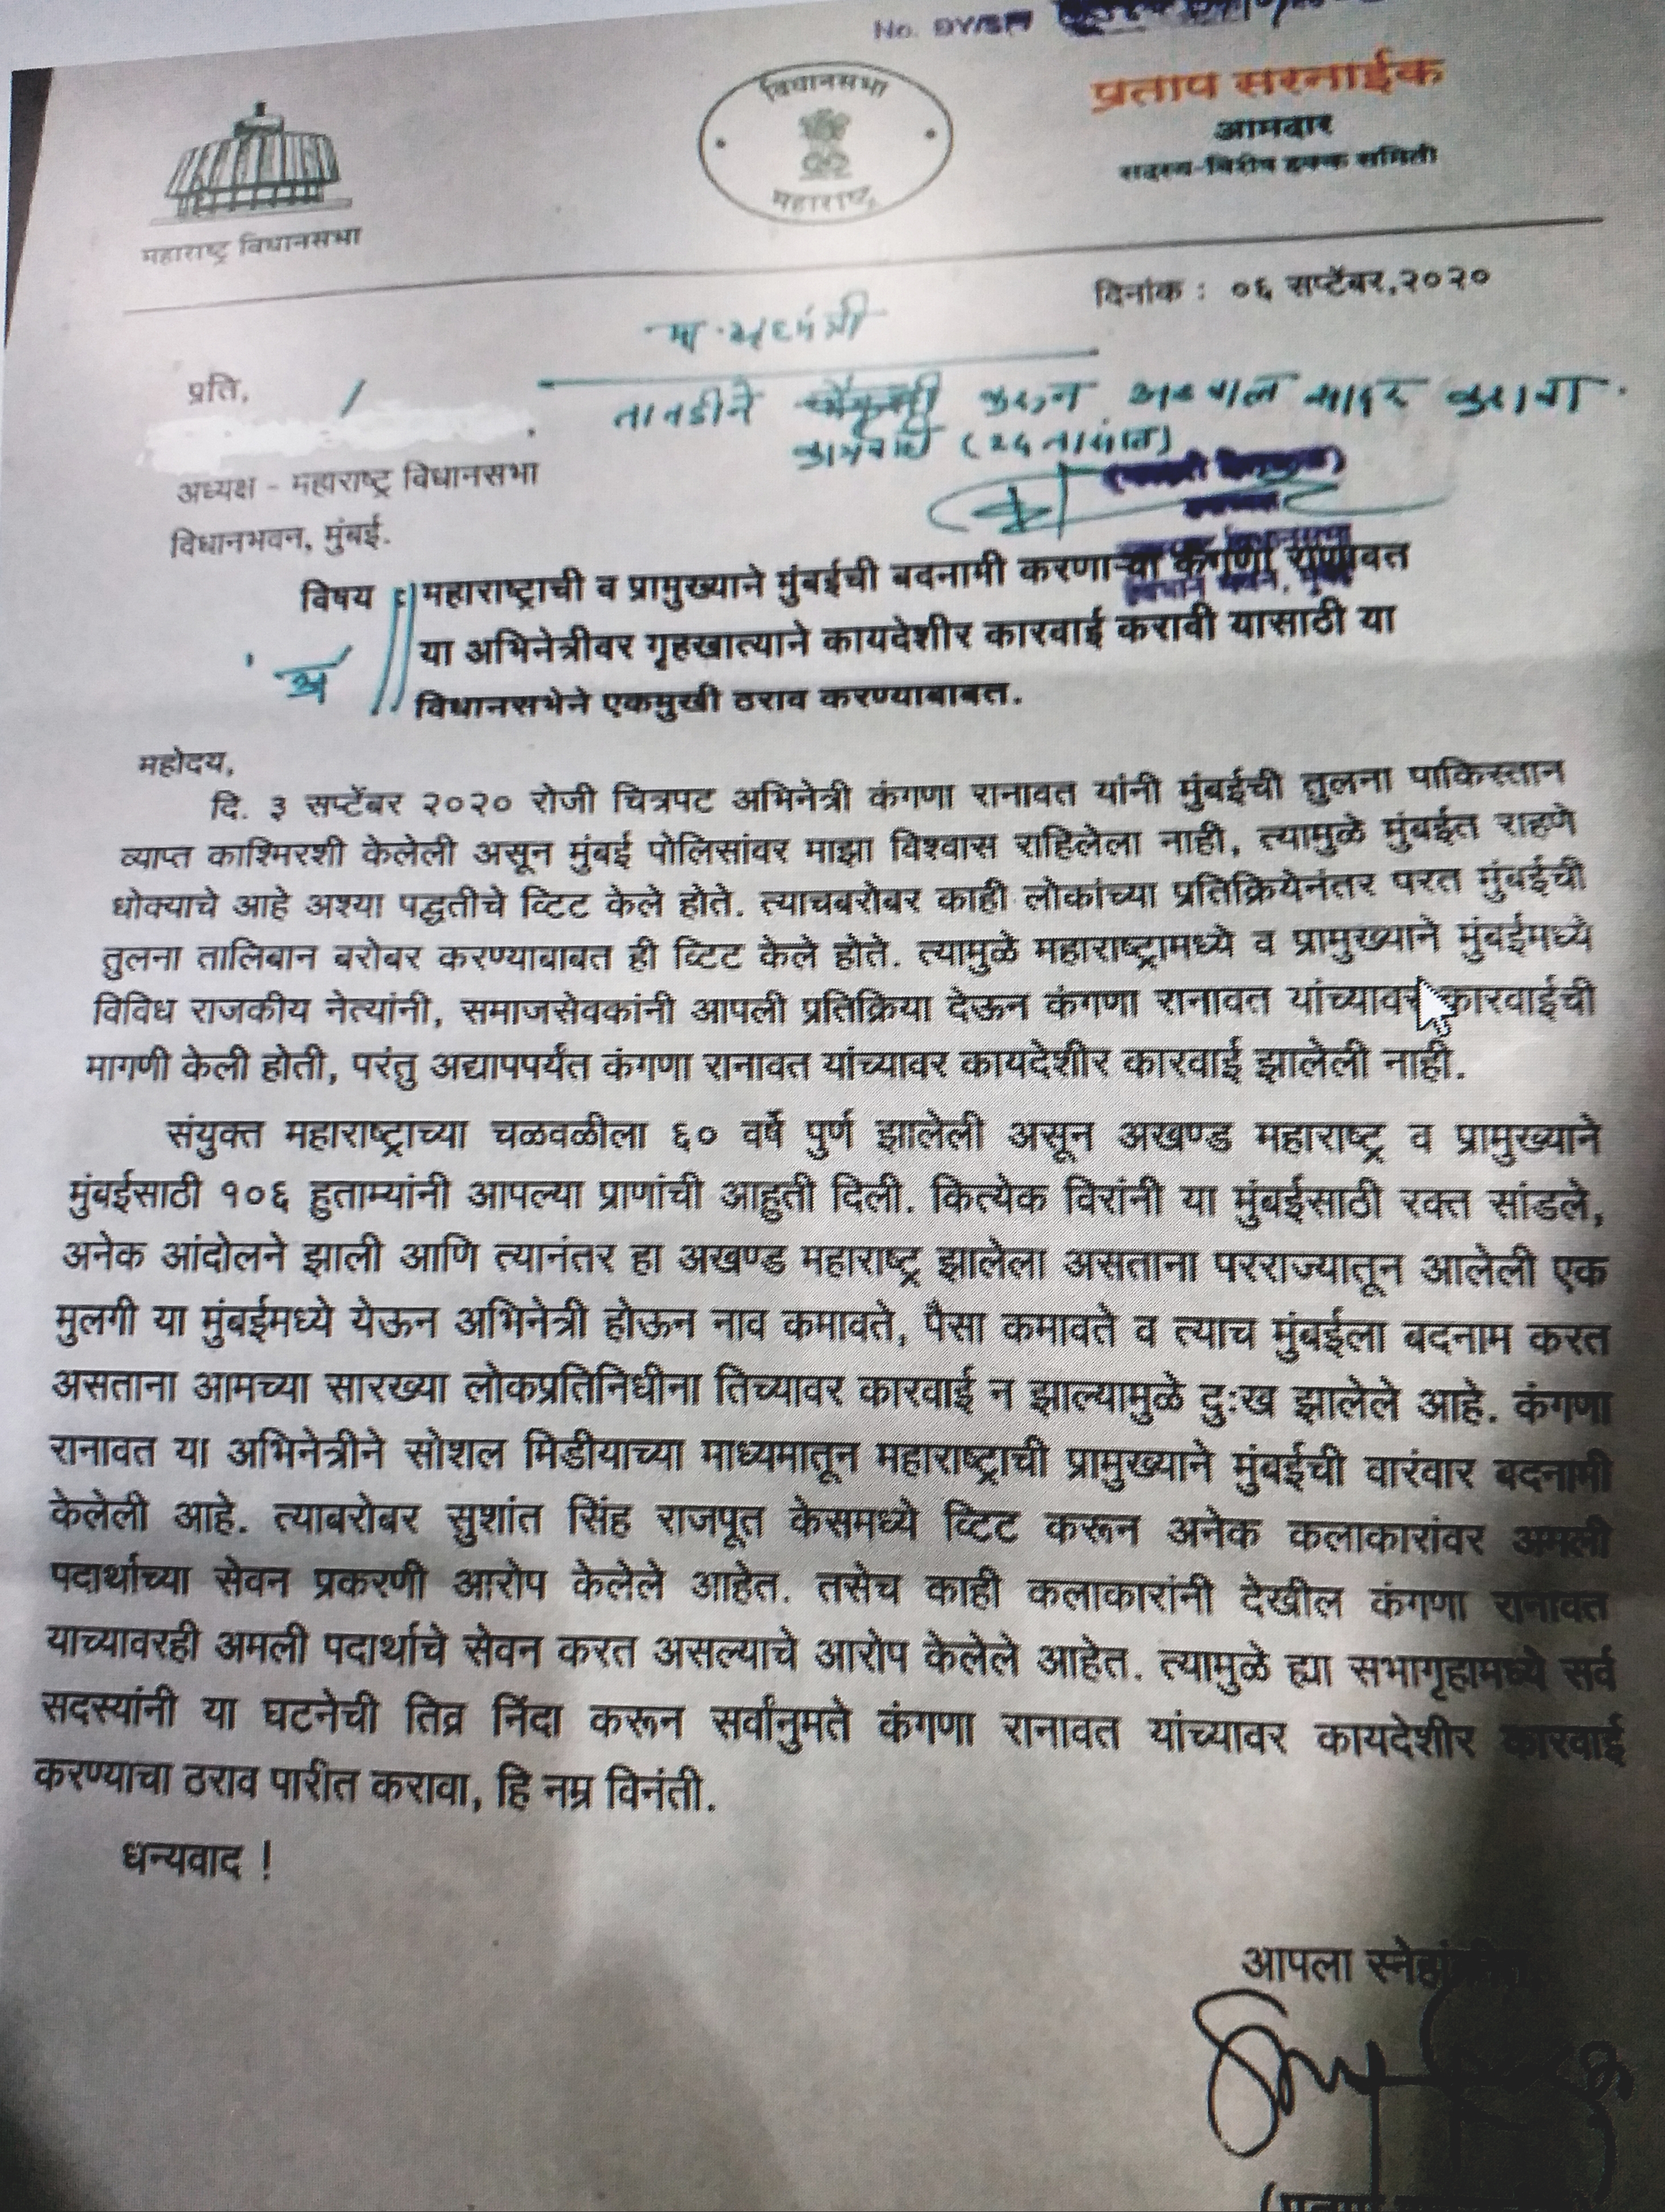 No. DY/SP
विधानसभा
महाराष्ट्र
प्रताप सरनाईक
आमदार
सदस्य-विशेष हक्क समिती
महाराष्ट्र विधानसभा
दिनांक : ०६ सप्टेंबर,२०२०
प्रति,
करून अहवाल सादर करावा.
अध्यक्ष - महाराष्ट्र विधानसभा
विधानभवन, मुंबई.
विषय : महाराष्ट्राची व प्रामुख्याने मुंबईची बदनामी करणाऱ्या कंगणा राणावत
या अभिनेत्रीवर गृहखात्याने कायदेशीर कारवाई करावी यासाठी या
'अ'
विधानसभेने एकमुखी ठराव करण्याबाबत.
महोदय,
दि. ३ सप्टेंबर २०२० रोजी चित्रपट अभिनेत्री कंगणा रानावत यांनी मुंबईची तुलना पाकिस्तान
व्याप्त काश्मिरशी केलेली असून मुंबई पोलिसांवर माझा विश्वास राहिलेला नाही, त्यामुळे मुंबईत राहणे
धोक्याचे आहे अश्या पद्धतीचे व्टिट केले होते. त्याचबरोबर काही लोकांच्या प्रतिक्रियेनंतर परत मुंबईची
तुलना तालिबान बरोबर करण्याबाबत ही व्टिट केले होते. त्यामुळे महाराष्ट्रामध्ये व प्रामुख्याने मुंबईमध्ये
विविध राजकीय नेत्यांनी, समाजसेवकांनी आपली प्रतिक्रिया देऊन कंगणा रानावत यांच्यावर कारवाईची
मागणी केली होती, परंतु अद्यापपर्यत कंगणा रानावत यांच्यावर कायदेशीर कारवाई झालेली नाही.
संयुक्त महाराष्ट्राच्या चळवळीला ६० वर्षे पुर्ण झालेली असून अखण्ड महाराष्ट्र व प्रामुख्याने
मुंबईसाठी १०६ हुताम्यांनी आपल्या प्राणांची आहुती दिली. कित्येक विरांनी या मुंबईसाठी रक्त सांडले,
अनेक आंदोलने झाली आणि त्यानंतर हा अखण्ड महाराष्ट्र झालेला असताना परराज्यातून आलेली एक
मुलगी या मुंबईमध्ये येऊन अभिनेत्री होऊन नाव कमावते, पैसा कमावते व त्याच मुंबईला बदनाम करत
असताना आमच्या सारख्या लोकप्रतिनिधीना तिच्यावर कारवाई न झाल्यामुळे दुःख झालेले आहे. कंगणा
रानावत या अभिनेत्रीने सोशल मिडीयाच्या माध्यमातून महाराष्ट्राची प्रामुख्याने मुंबईची वारंवार बदनामी
केलेली आहे. त्याबरोबर सुशांत सिंह राजपूत केसमध्ये व्टिट करून अनेक कलाकारांवर अमली
पदार्थाच्या सेवन प्रकरणी आरोप केलेले आहेत. तसेच काही कलाकारांनी देखील कंगणा रानावत
याच्यावरही अमली पदार्थाचे सेवन करत असल्याचे आरोप केलेले आहेत. त्यामुळे ह्या सभागृहामध्ये सर्व
सदस्यांनी या घटनेची तिव्र निंदा करून सर्वानुमते कंगणा रानावत यांच्यावर कायदेशीर कारवाई
करण्याचा ठराव पारीत करावा, हि नम्र विनंती.
धन्यवाद !
आपला